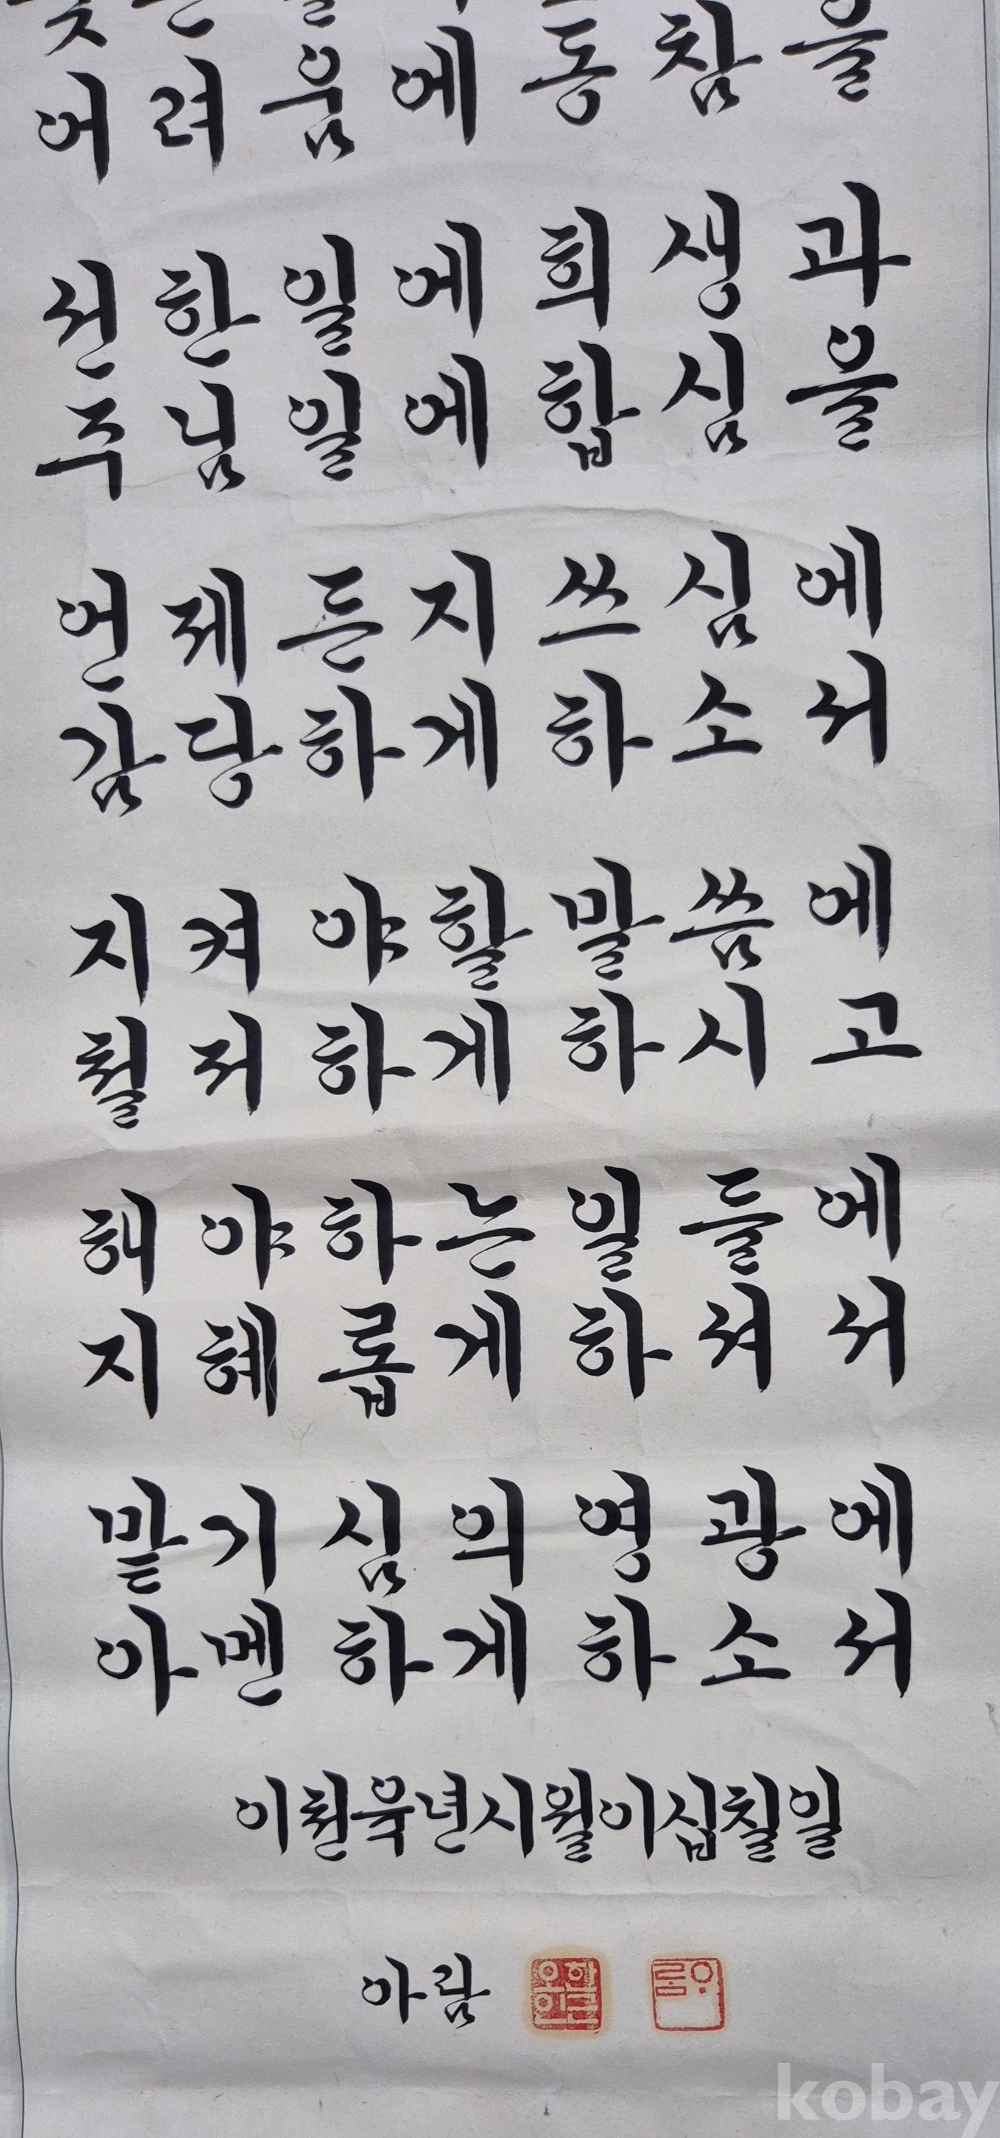 어려움에동참을
선한일에희생과
주님일에합심을
언제든지쓰심에
감당하게하소서
지켜야할말씀에
철저하게하시고
해야하는일들에
지혜롭게하셔서
맡기심의영광에
아멘하게하소서
이천육년시월이십칠일
아람
kobay